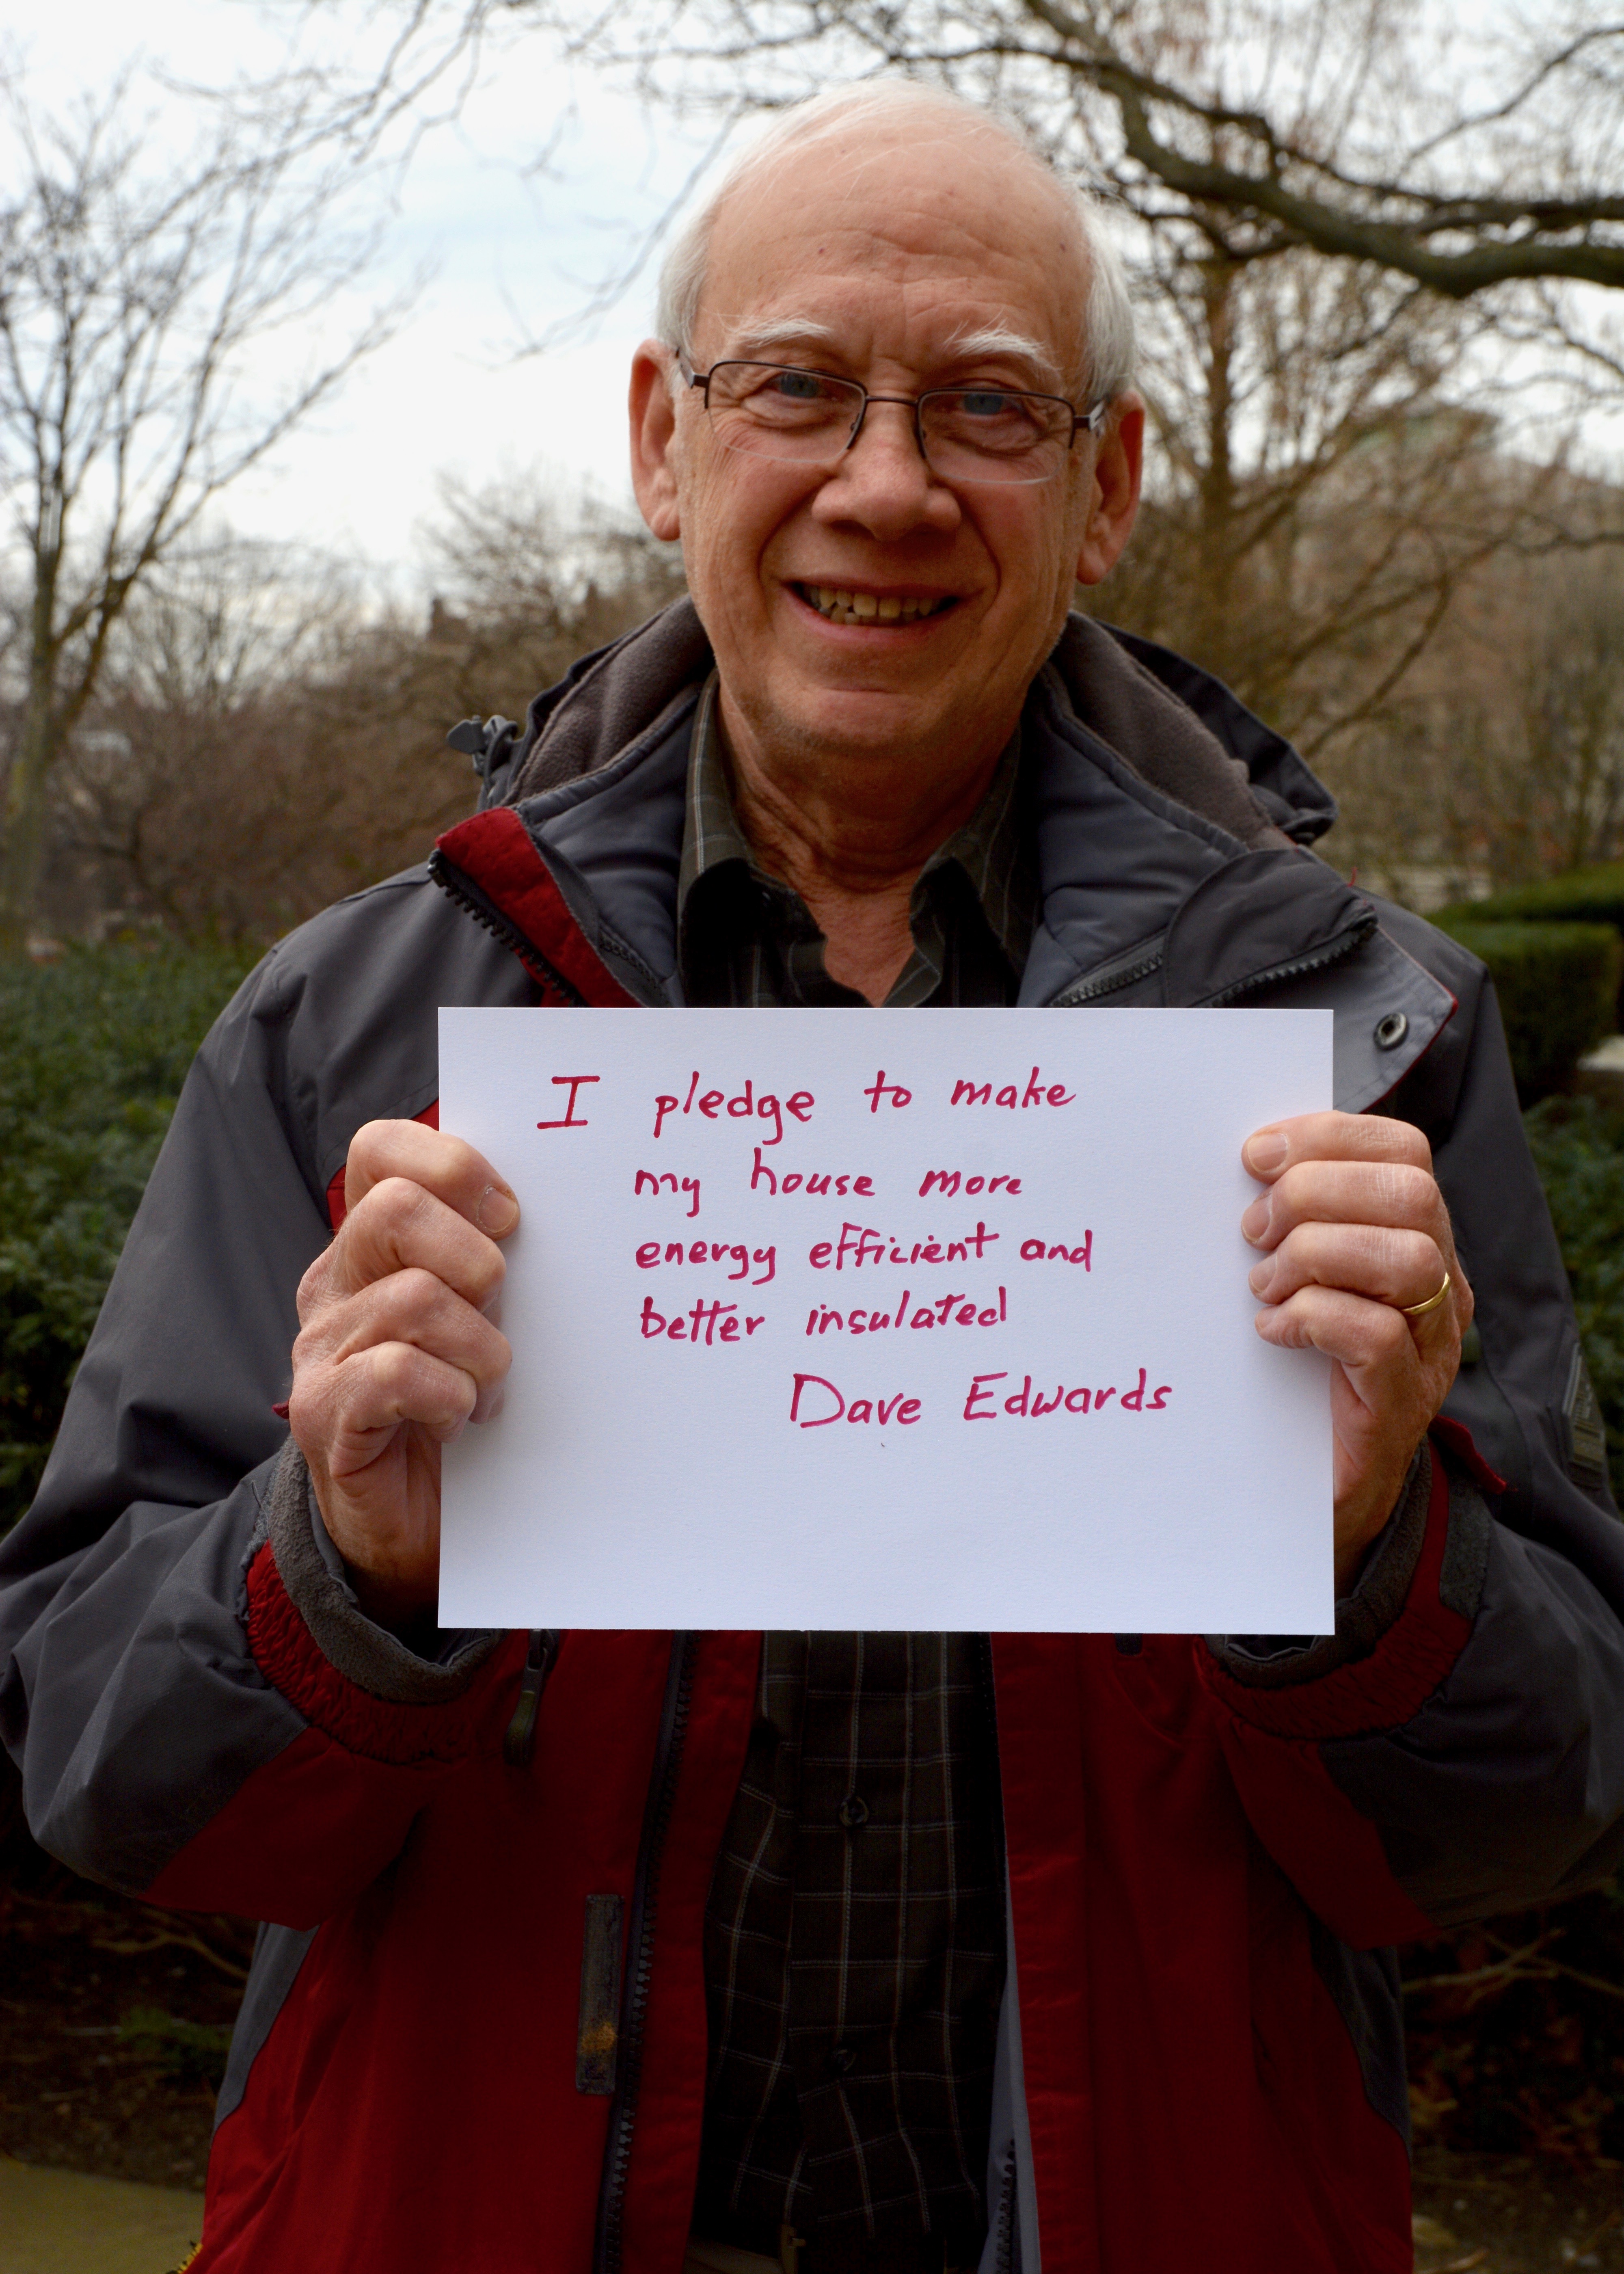 I pledge to make
my house more
energy efficient and
better insulated
Dave Edwards